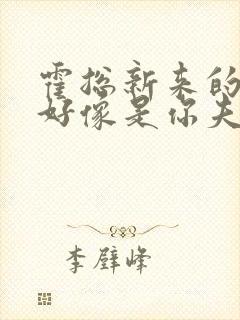 霍总新来的
好像是你夫
李壁峰